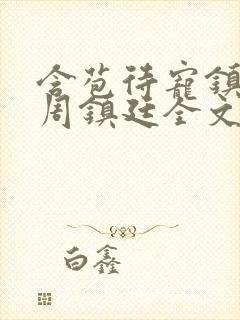 含苞待寵鎮
周鎮廷全文
白鑫